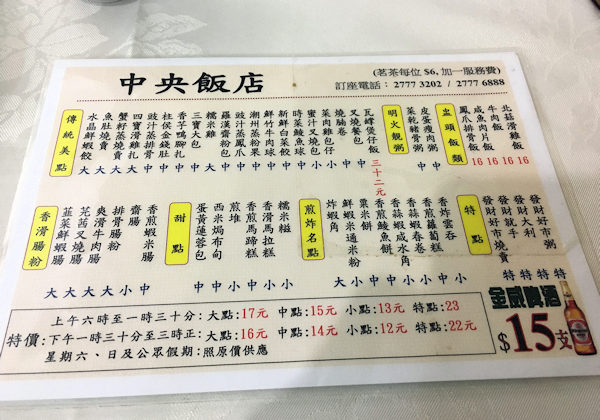 中央飯店
(茗茶每位 $6, 加一服務費)
訂座電話：2777 3202 / 2777 6888
傳統美點
水晶鮮蝦餃
魚肚燒賣
蟹籽蒸燒賣
四寶滑雞扎
豉汁蒸排骨
柱侯金錢肚
香芋鴨腳扎
糯米雞
羅漢齋粉包
豉汁蒸鳳爪
潮州蒸粉果
鮮竹牛肉球
新鮮白菜餃
時菜鯪魚球
蜜汁叉燒包
菜肉雞包仔
燒腸卷
叉燒餐包
瓦罉煲仔飯 三十二元
明火靚粥
菜乾豬骨粥 中
皮蛋瘦肉粥 中
盅頭飯類
鳳爪排骨飯 16
咸魚肉片飯 16
牛肉飯 16
北菇滑雞飯 16
香滑腸粉
韮菜鮮蝦腸 大
芫茜叉燒腸 大
爽滑牛肉腸 大
排骨腸粉 大
齋腸 小
香煎蝦米腸 中
甜點
蛋黃蓮蓉包
西米焗布甸
煎堆
香煎馬蹄糕
香滑馬拉糕
糯米糍
煎炸名點
炸蝦角
鮮蝦米通米粉
粟米餅
香煎鯪魚餅
香蒜咸水角
香蒜蝦春卷
香煎蘿蔔糕
香炸雲吞
特點
特 特 特 特
特價：
上午六時至一時三十分：大點：17元 中點：15元 小點：13元 特點：23
下午一時三十分至三時正：大點：16元 中點：14元 小點：12元 特點：22元
星期六、日及公眾假期：照原價供應
金威啤酒
$15支